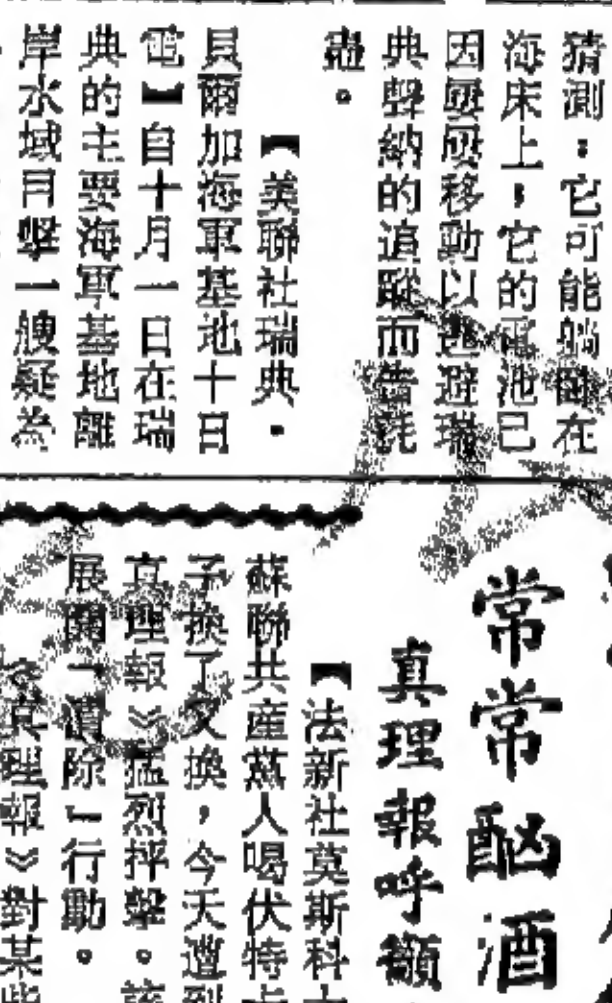 猜測:它可能躺臥在
海床上,它的電池已
因屢屢移動以逃避瑞
典聲納的追蹤而告耗
盡。
【美聯社瑞典·
貝爾加海軍基地十日
電】自十月一日在瑞
典的主要海軍基地離
岸水域目擊一艘疑為
常常酗酒
真理報呼籲
【法新社莫斯科
蘇聯共產黨人喝伏特
子換了又換,今天遭
真理報》猛烈抨擊。該
展開「清除」行動。
《真理報》對某些